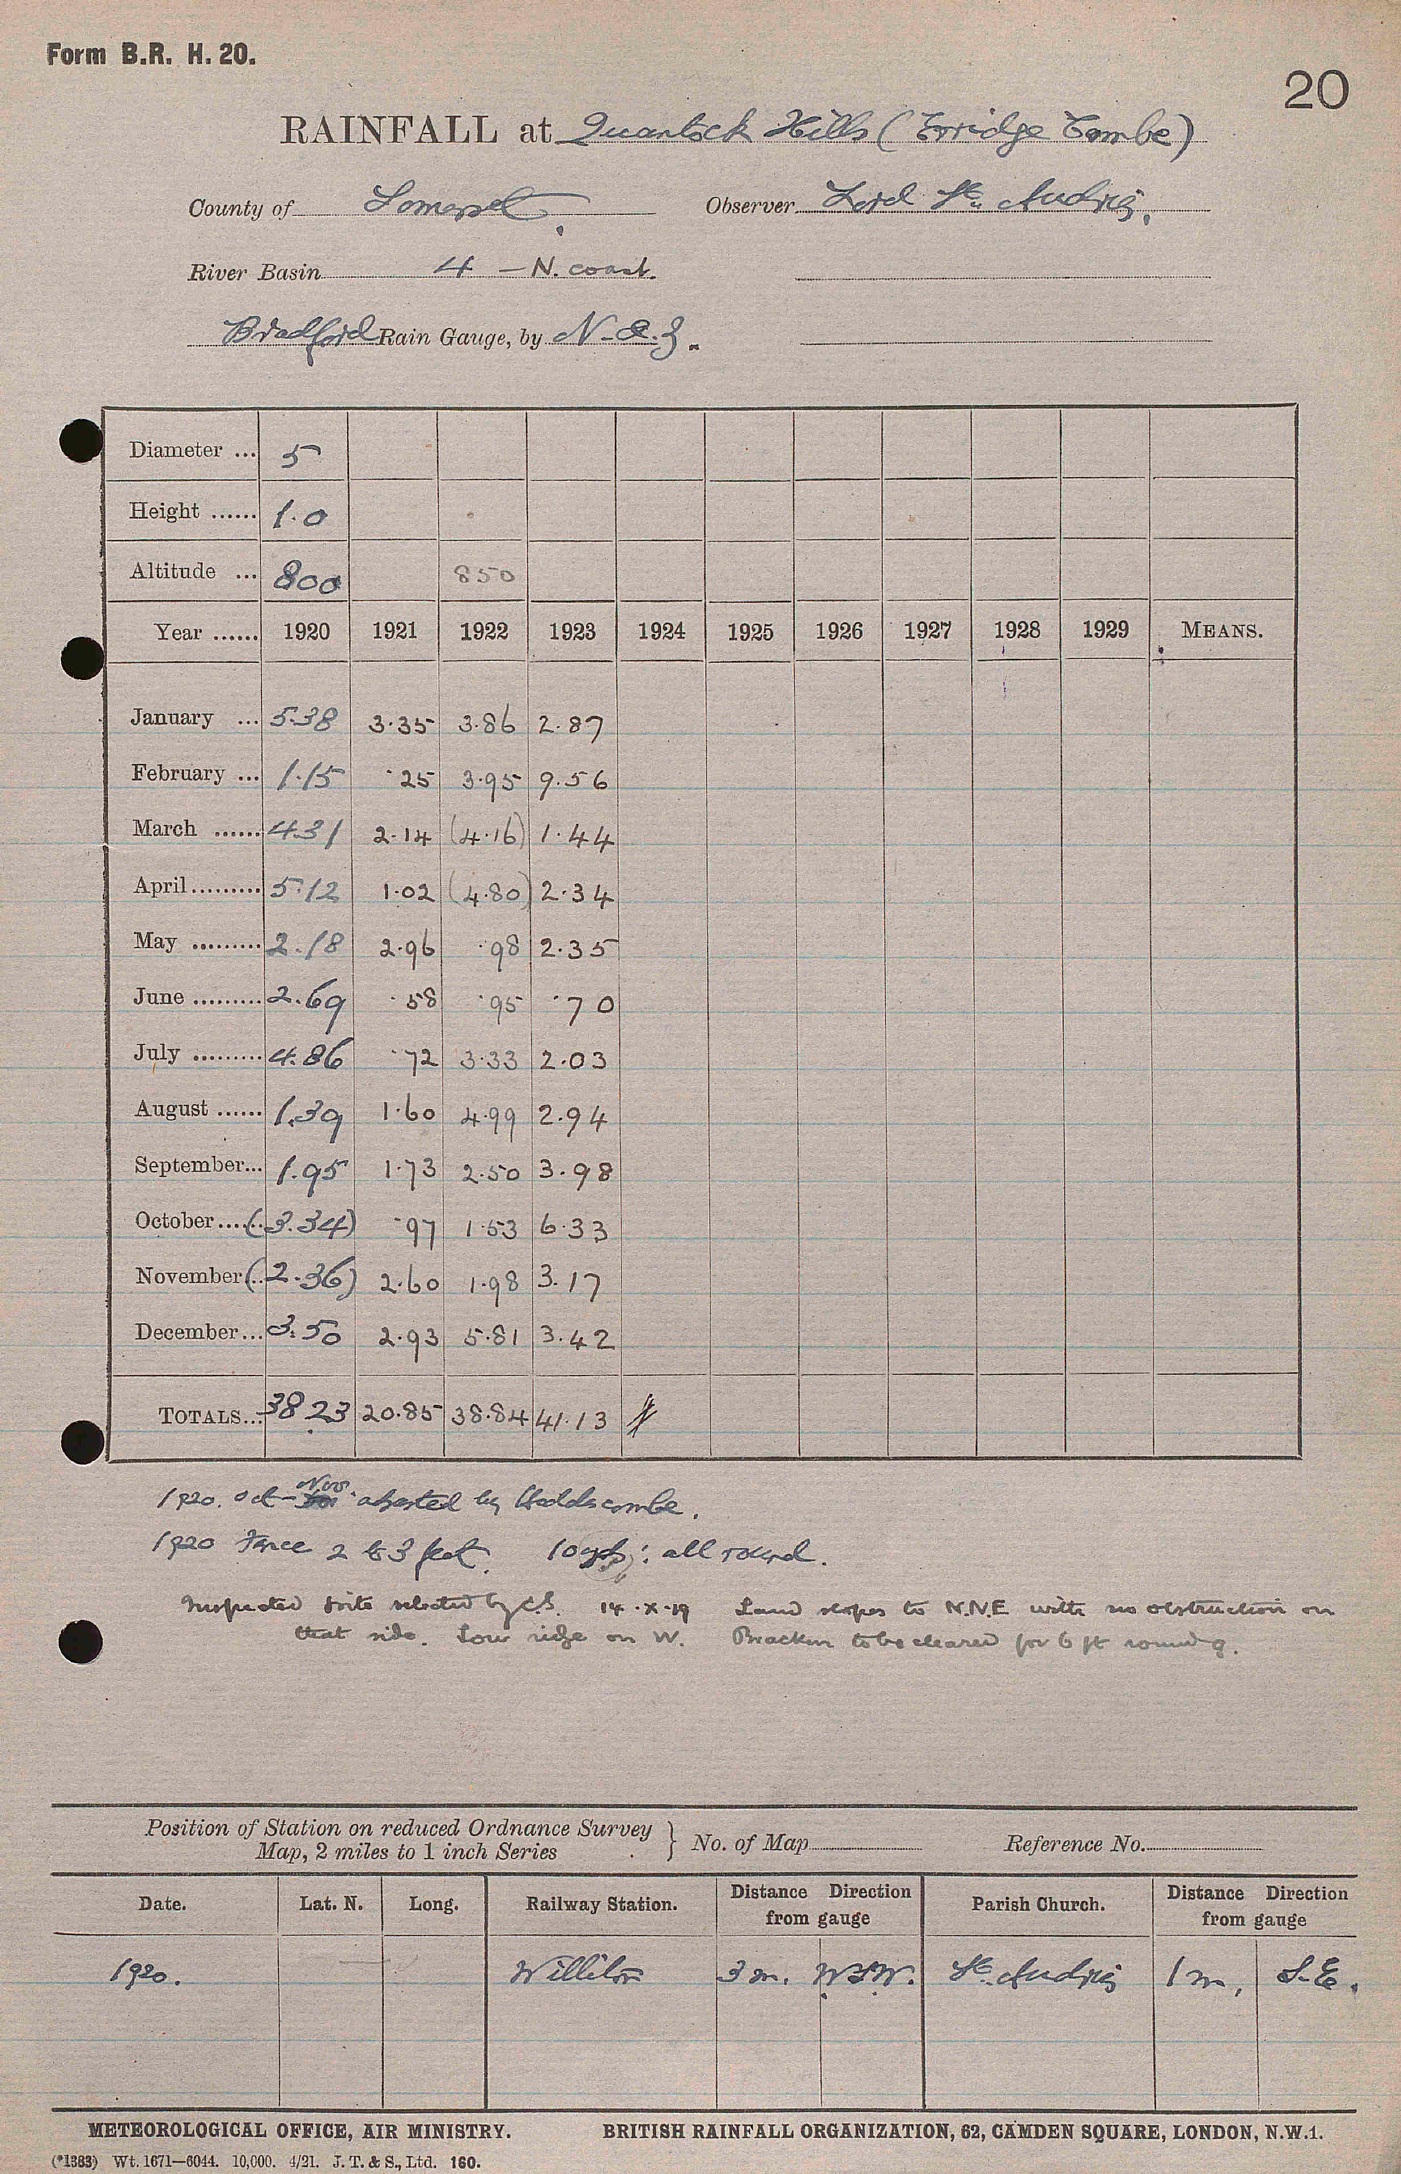 Form B.R. H. 20.
20
RAINFALL at Quantock Hills (Erridge Combe)
County of Somerset. Observer Lord St. Audries.
River Basin 4 - N. coast.
Bradford Rain Gauge, by N. & Z.
Diameter ... 5
Height ...... 1.0
Altitude ... 800 850
Year ...... 1920 1921 1922 1923 1924 1925 1926 1927 1928 1929 MEANS.
January ... 5.38 3.35 3.86 2.87
February ... 1.15 .25 3.95 9.56
March ...... 4.31 2.14 (4.16) 1.44
April ......... 5.12 1.02 (4.80) 2.34
May ......... 2.18 2.96 .98 2.35
June ......... 2.69 .58 .95 .70
July ......... 4.86 .72 3.33 2.03
August ...... 1.39 1.60 4.99 2.94
September... 1.95 1.73 2.50 3.98
October ...... (3.34) .97 1.53 6.33
November ... (2.36) 2.60 1.98 3.17
December... 3.50 2.93 5.81 3.42
TOTALS... 38.23 20.85 38.84 41.13
1920. Oct - Nov. adjusted by Holdscombe.
1920 Fence 2 to 3 feet. 10 yds: all round.
Inspected Site selected by C.S. 14.X.19 Land slopes to N.N.E with no obstruction on
that side. Low ridge on W. Bracken to be cleared for 6 ft round g.
Position of Station on reduced Ordnance Survey
Map, 2 miles to 1 inch Series } No. of Map Reference No.
Date. Lat. N. Long. Railway Station. Distance Direction from gauge Parish Church. Distance Direction from gauge
1920. Williton 3 m. WSW. St. Audries 1 m. S.E.
METEOROLOGICAL OFFICE, AIR MINISTRY. BRITISH RAINFALL ORGANIZATION, 62, CAMDEN SQUARE, LONDON, N.W.1.
(*1383) Wt. 1671—6044. 10,000. 4/21. J. T. & S., Ltd. 160.